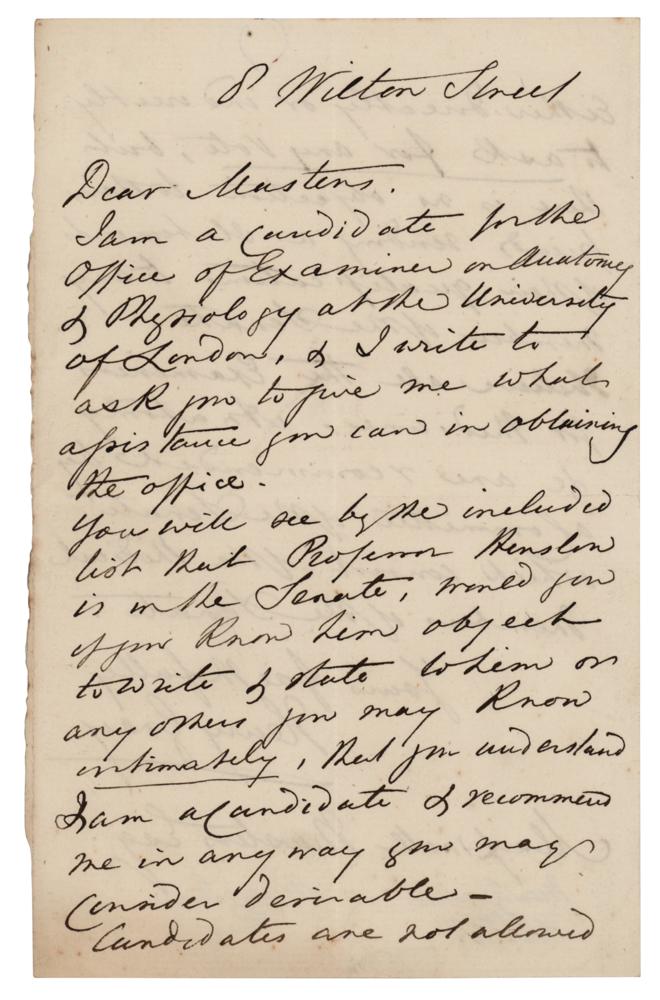 8 Wilton Street
Dear Masters.
I am a Candidate for the
Office of Examiner on Anatomy
& Physiology at the University
of London, & I write to
ask you to give me what
assistance you can in obtaining
the office.
You will see by the included
list that Professor Henslow
is in the Senate, would you
if you Know him object
to write & state to him or
any others you may Know
intimately, that you understand
I am a Candidate & recommend
me in any way you may
Consider desirable –
Candidates are not allowed